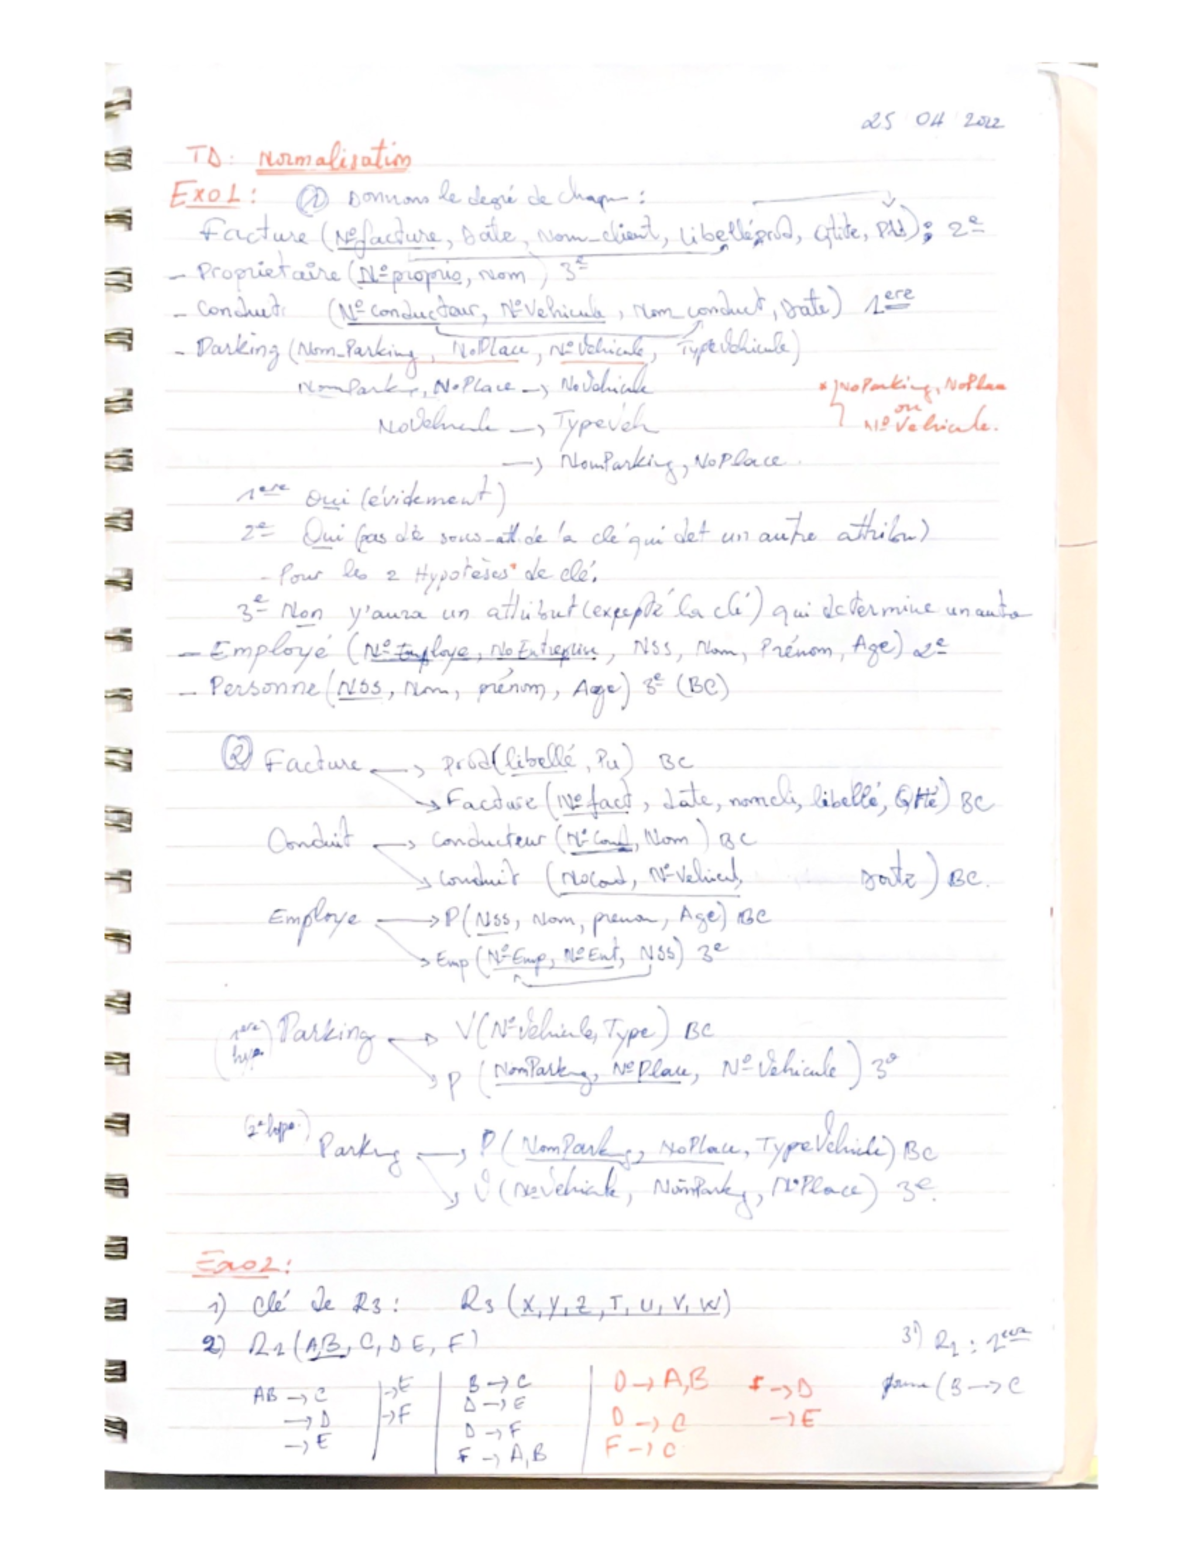 25 04 2022
TD: Normalisation
Exo1: ① Donnons le degré de chaque :
Facture (N°facture, Date, Nom_client, Libelléprod, Qtite, PU) ; 2e
- Proprietaire (N°proprio, Nom) 3e
- Conduit (N°conducteur, N°Vehicule, Nom_conduct, Date) 1ere
- Parking (Nom_Parking, NoPlace, N°Vehicule, TypeVehicule)
NomPark, NoPlace → NoVehicule
* NoParking, NoPlace
ou
N° Vehicule.
NoVehicule → TypeVeh
→ NomParking, NoPlace.
1ere Oui (évidement)
2e Oui (pas de sous-att de la clé qui det un autre attribu)
- Pour les 2 Hypotèses* de clé.
3e Non y'aura un attribut (excepté la clé) qui determine un autre
- Employé (N°Employe, NoEntreprise, NSS, Nom, Prénom, Age) 2e
- Personne (NSS, Nom, prénom, Age) 3e (BC)
② Facture → Prod(libellé, Pu) BC
→ Facture (N°fact, date, nomcli, libellé, Qtté) BC
Conduit → Conducteur (N°Cond, Nom) BC
→ Conduit (NoCond, N°Vehicul, Date) BC.
Employe → P(NSS, Nom, prenom, Age) BC
→ Emp (N°Emp, N°Ent, NSS) 3e
(1ere hyp.) Parking → V(N°Vehicule, Type) BC
→ P (NomParking, N°Place, N°Vehicule) 3e
(2e hypo.) Parking → P(NomParking, NoPlace, TypeVehicule) BC
→ V (NoVehicule, NomParkg, N°Place) 3e.
Exo2:
1) Clé de R3 : R3 (X, Y, Z, T, U, V, W)
2) R1 (A,B, C, D E, F)
3') R1 : 1ere
forme (B → C
AB → C
→ D
→ E
→ E
→ F
B → C
D → E
D → F
F → A, B
D → A, B
D → C
F → C
F → D
→ E